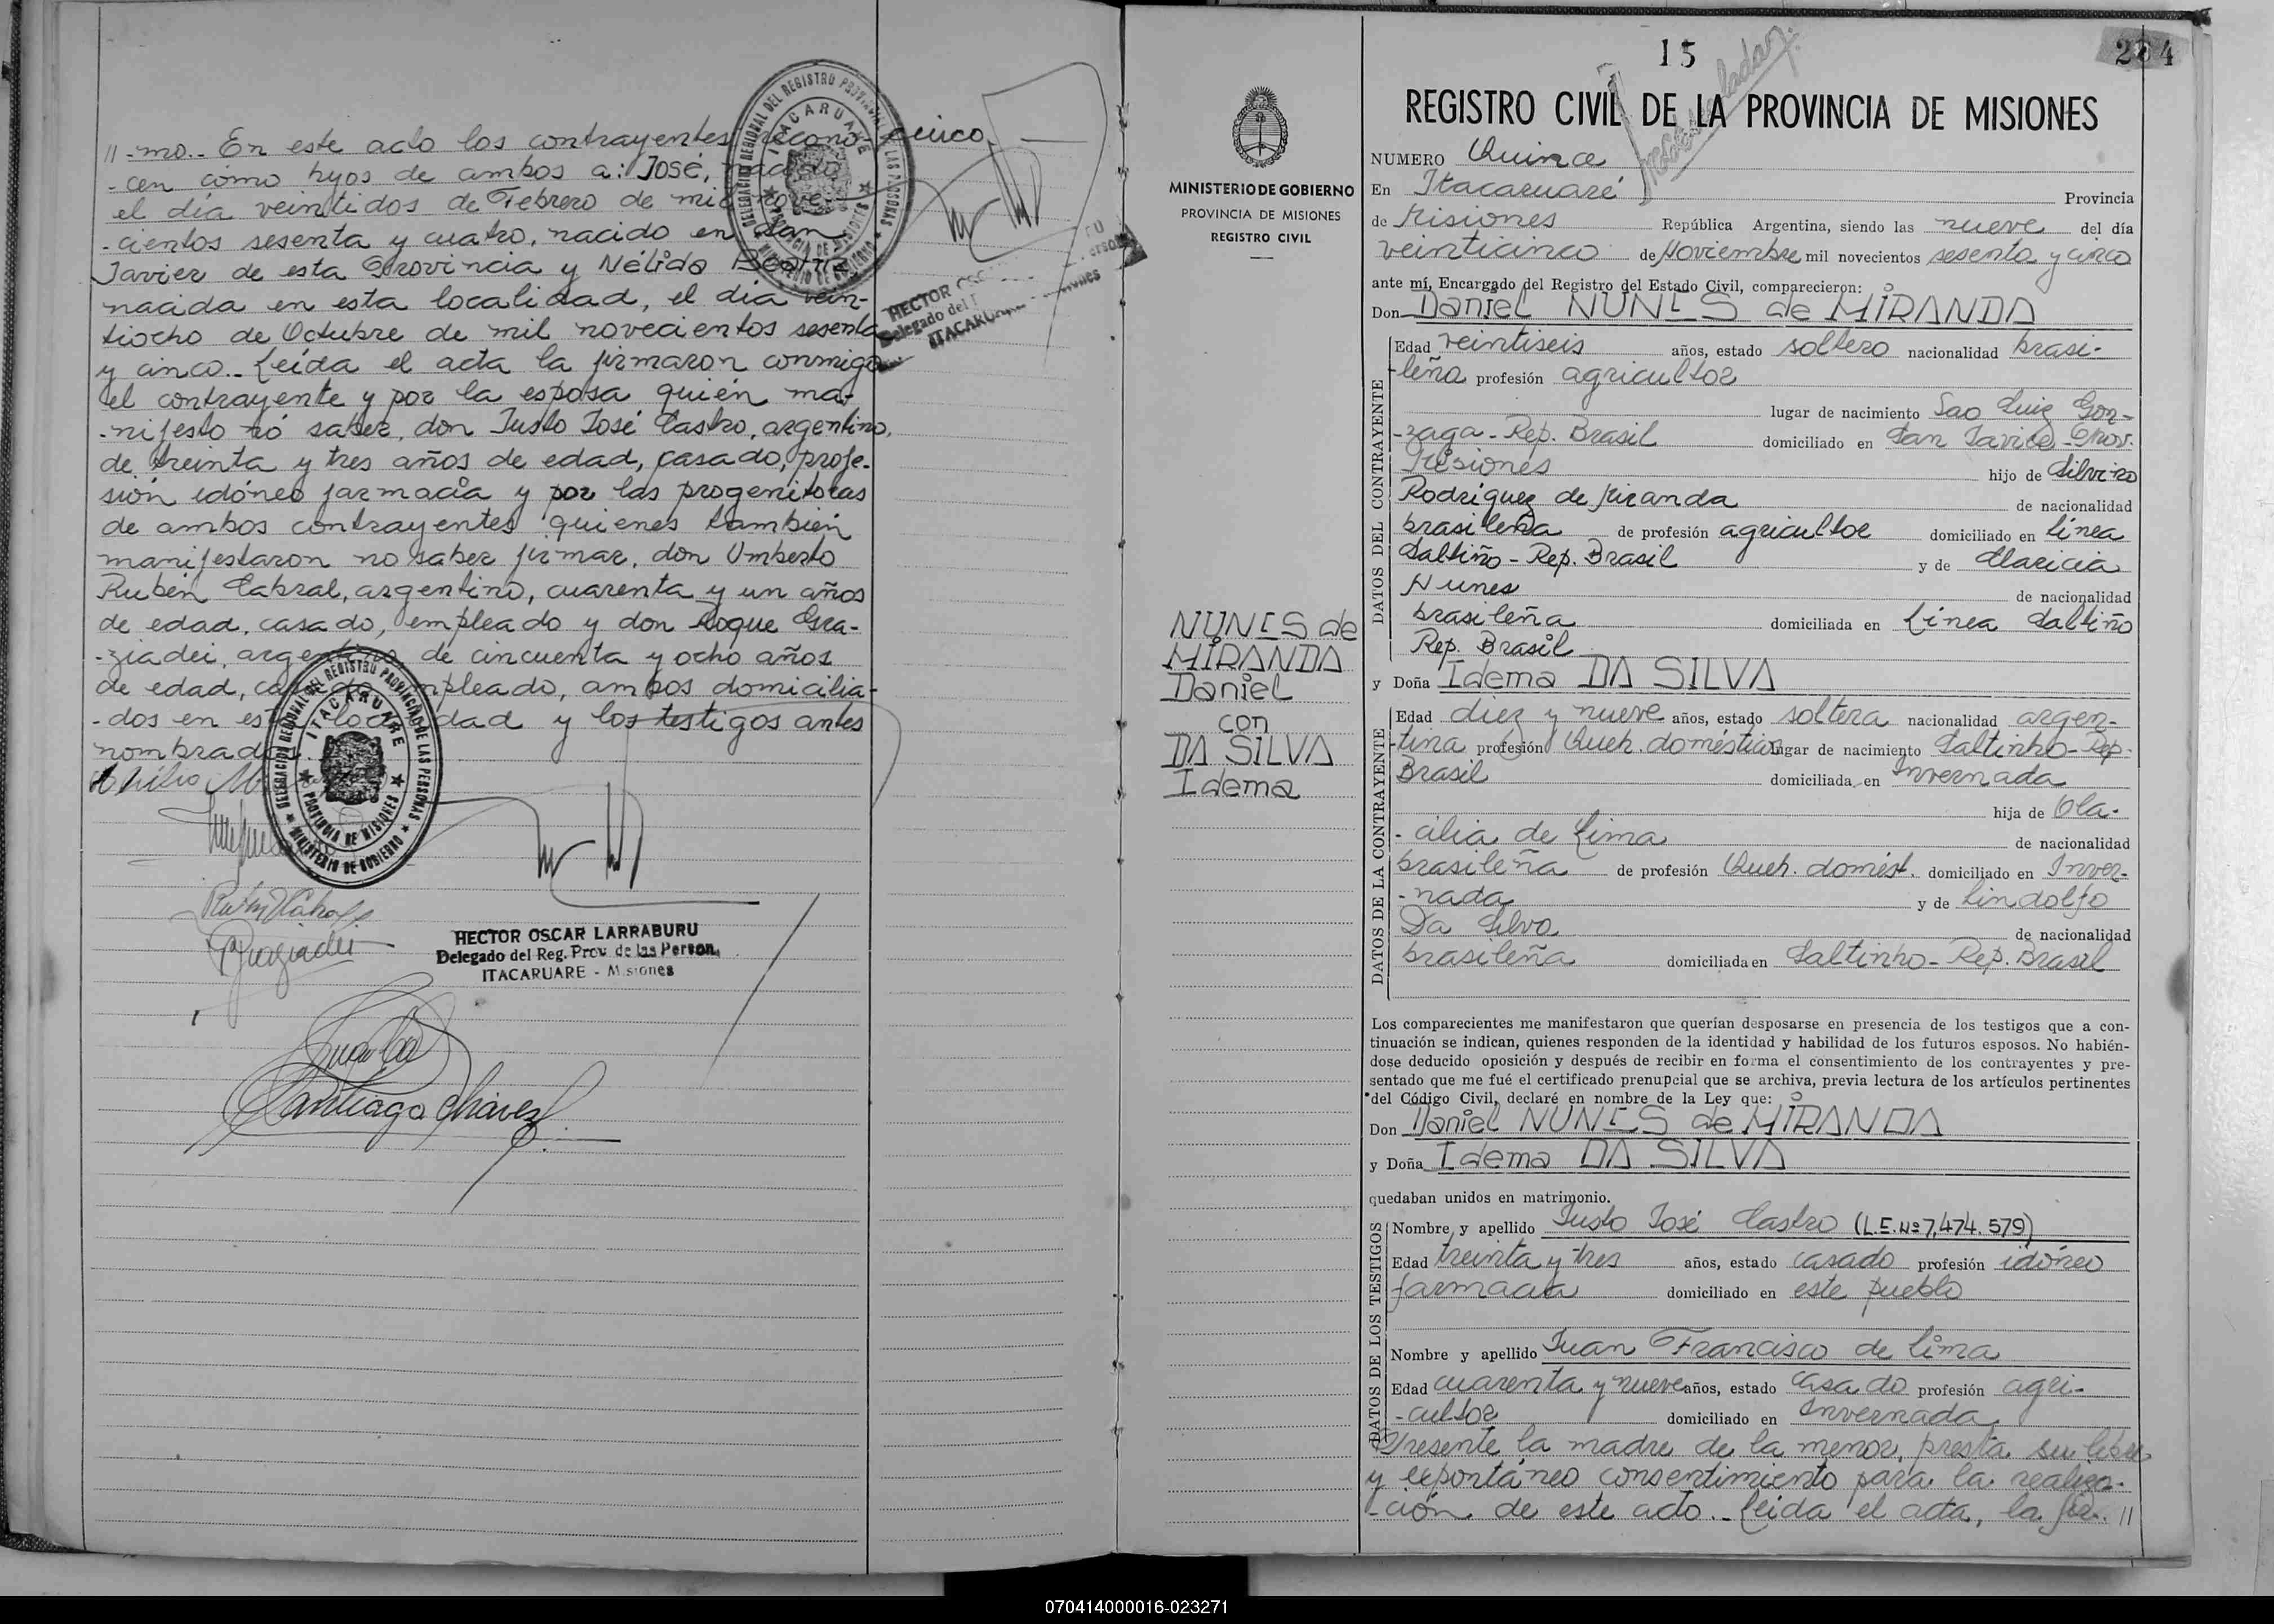 // -mo.- En este acto los contrayentes recono cinco
-cen como hijos de ambos a: José, nacido
el día veintidos de Febrero de mil nove-
-cientos sesenta y cuatro, nacido en San
Javier de esta Provincia y Nélida Beatriz
nacida en esta localidad, el día vein-
tiocho de Octubre de mil novecientos sesenta
y cinco.- Leída el acta la firmaron conmigo
el contrayente y por la esposa quién ma-
-nifesto nó saber, don Justo José Castro, argentino,
de treinta y tres años de edad, casado, profe-
sión idóneo farmacia y por las progenitoras
de ambos contrayentes quienes también
manifestaron no saber firmar, don Umberto
Rubén Cabral, argentino, cuarenta y un años
de edad, casado, empleado y don Roque Gra-
-ziadei, argentino de cincuenta y ocho años
de edad, casado empleado, ambos domicilia-
-dos en esta localidad y los testigos antes
nombrados.
DELEGACION REGIONAL DEL REGISTRO PROVINCIAL DE LAS PERSONAS
ITACARUARE
PROVINCIA DE MISIONES
MINISTERIO DE GOBIERNO
HECTOR OSC
Delegado del
ITACARU
DELEGACION REGIONAL DEL REGISTRO PROVINCIAL DE LAS PERSONAS
ITACARUARE
PROVINCIA DE MISIONES
MINISTERIO DE GOBIERNO
HECTOR OSCAR LARRABURU
Delegado del Reg. Prov. de las Person.
ITACARUARE - Misiones
Santiago Chavez
15
264
REGISTRO CIVIL DE LA PROVINCIA DE MISIONES
MINISTERIO DE GOBIERNO
PROVINCIA DE MISIONES
REGISTRO CIVIL
NUNES de
MIRANDA
Daniel
con
DA SILVA
Idema
NUMERO Quince
En Itacaruaré Provincia
de Misiones República Argentina, siendo las nueve del día
veinticinco de Noviembre mil novecientos sesenta y cinco
ante mí, Encargado del Registro del Estado Civil, comparecieron:
Don Daniel NUNES de MIRANDA
DATOS DEL CONTRAYENTE
Edad veintiseis años, estado soltero nacionalidad brasi-
-leña profesión agricultor
lugar de nacimiento Sao Luiz Gon-
-zaga - Rep. Brasil domiciliado en San Javier - Prov.
Misiones hijo de Silvino
Rodríguez de Miranda de nacionalidad
brasileña de profesión agricultor domiciliado en Línea
Saltiño - Rep. Brasil y de Claricia
Nunes de nacionalidad
brasileña domiciliada en Línea Saltiño
Rep. Brasil
y Doña Idema DA SILVA
DATOS DE LA CONTRAYENTE
Edad diez y nueve años, estado soltera nacionalidad argen-
-tina profesión Queh. domésticos lugar de nacimiento Saltinho - Rep.
Brasil domiciliada en Invernada
hija de Ola-
-cilia de Lima de nacionalidad
brasileña de profesión Queh. domést. domiciliado en Inver-
-nada y de Lindolfo
Da Silva de nacionalidad
brasileña domiciliada en Saltinho - Rep. Brasil
Los comparecientes me manifestaron que querían desposarse en presencia de los testigos que a con-
tinuación se indican, quienes responden de la identidad y habilidad de los futuros esposos. No habién-
dose deducido oposición y después de recibir en forma el consentimiento de los contrayentes y pre-
sentado que me fué el certificado prenupcial que se archiva, previa lectura de los artículos pertinentes
del Código Civil, declaré en nombre de la Ley que:
Don Daniel NUNES de MIRANDA
y Doña Idema DA SILVA
quedaban unidos en matrimonio.
DATOS DE LOS TESTIGOS
Nombre y apellido Justo José Castro (L.E. Nº 7,474.579)
Edad treinta y tres años, estado casado profesión idóneo
farmacia domiciliado en este pueblo
Nombre y apellido Juan Francisco de Lima
Edad cuarenta y nueve años, estado casado profesión agri-
-cultor domiciliado en Invernada
Presente la madre de la menor, presta su libre
y expontáneo consentimiento para la realiza-
-ción de este acto.- Leida el acta, la fir. //
070414000016-023271